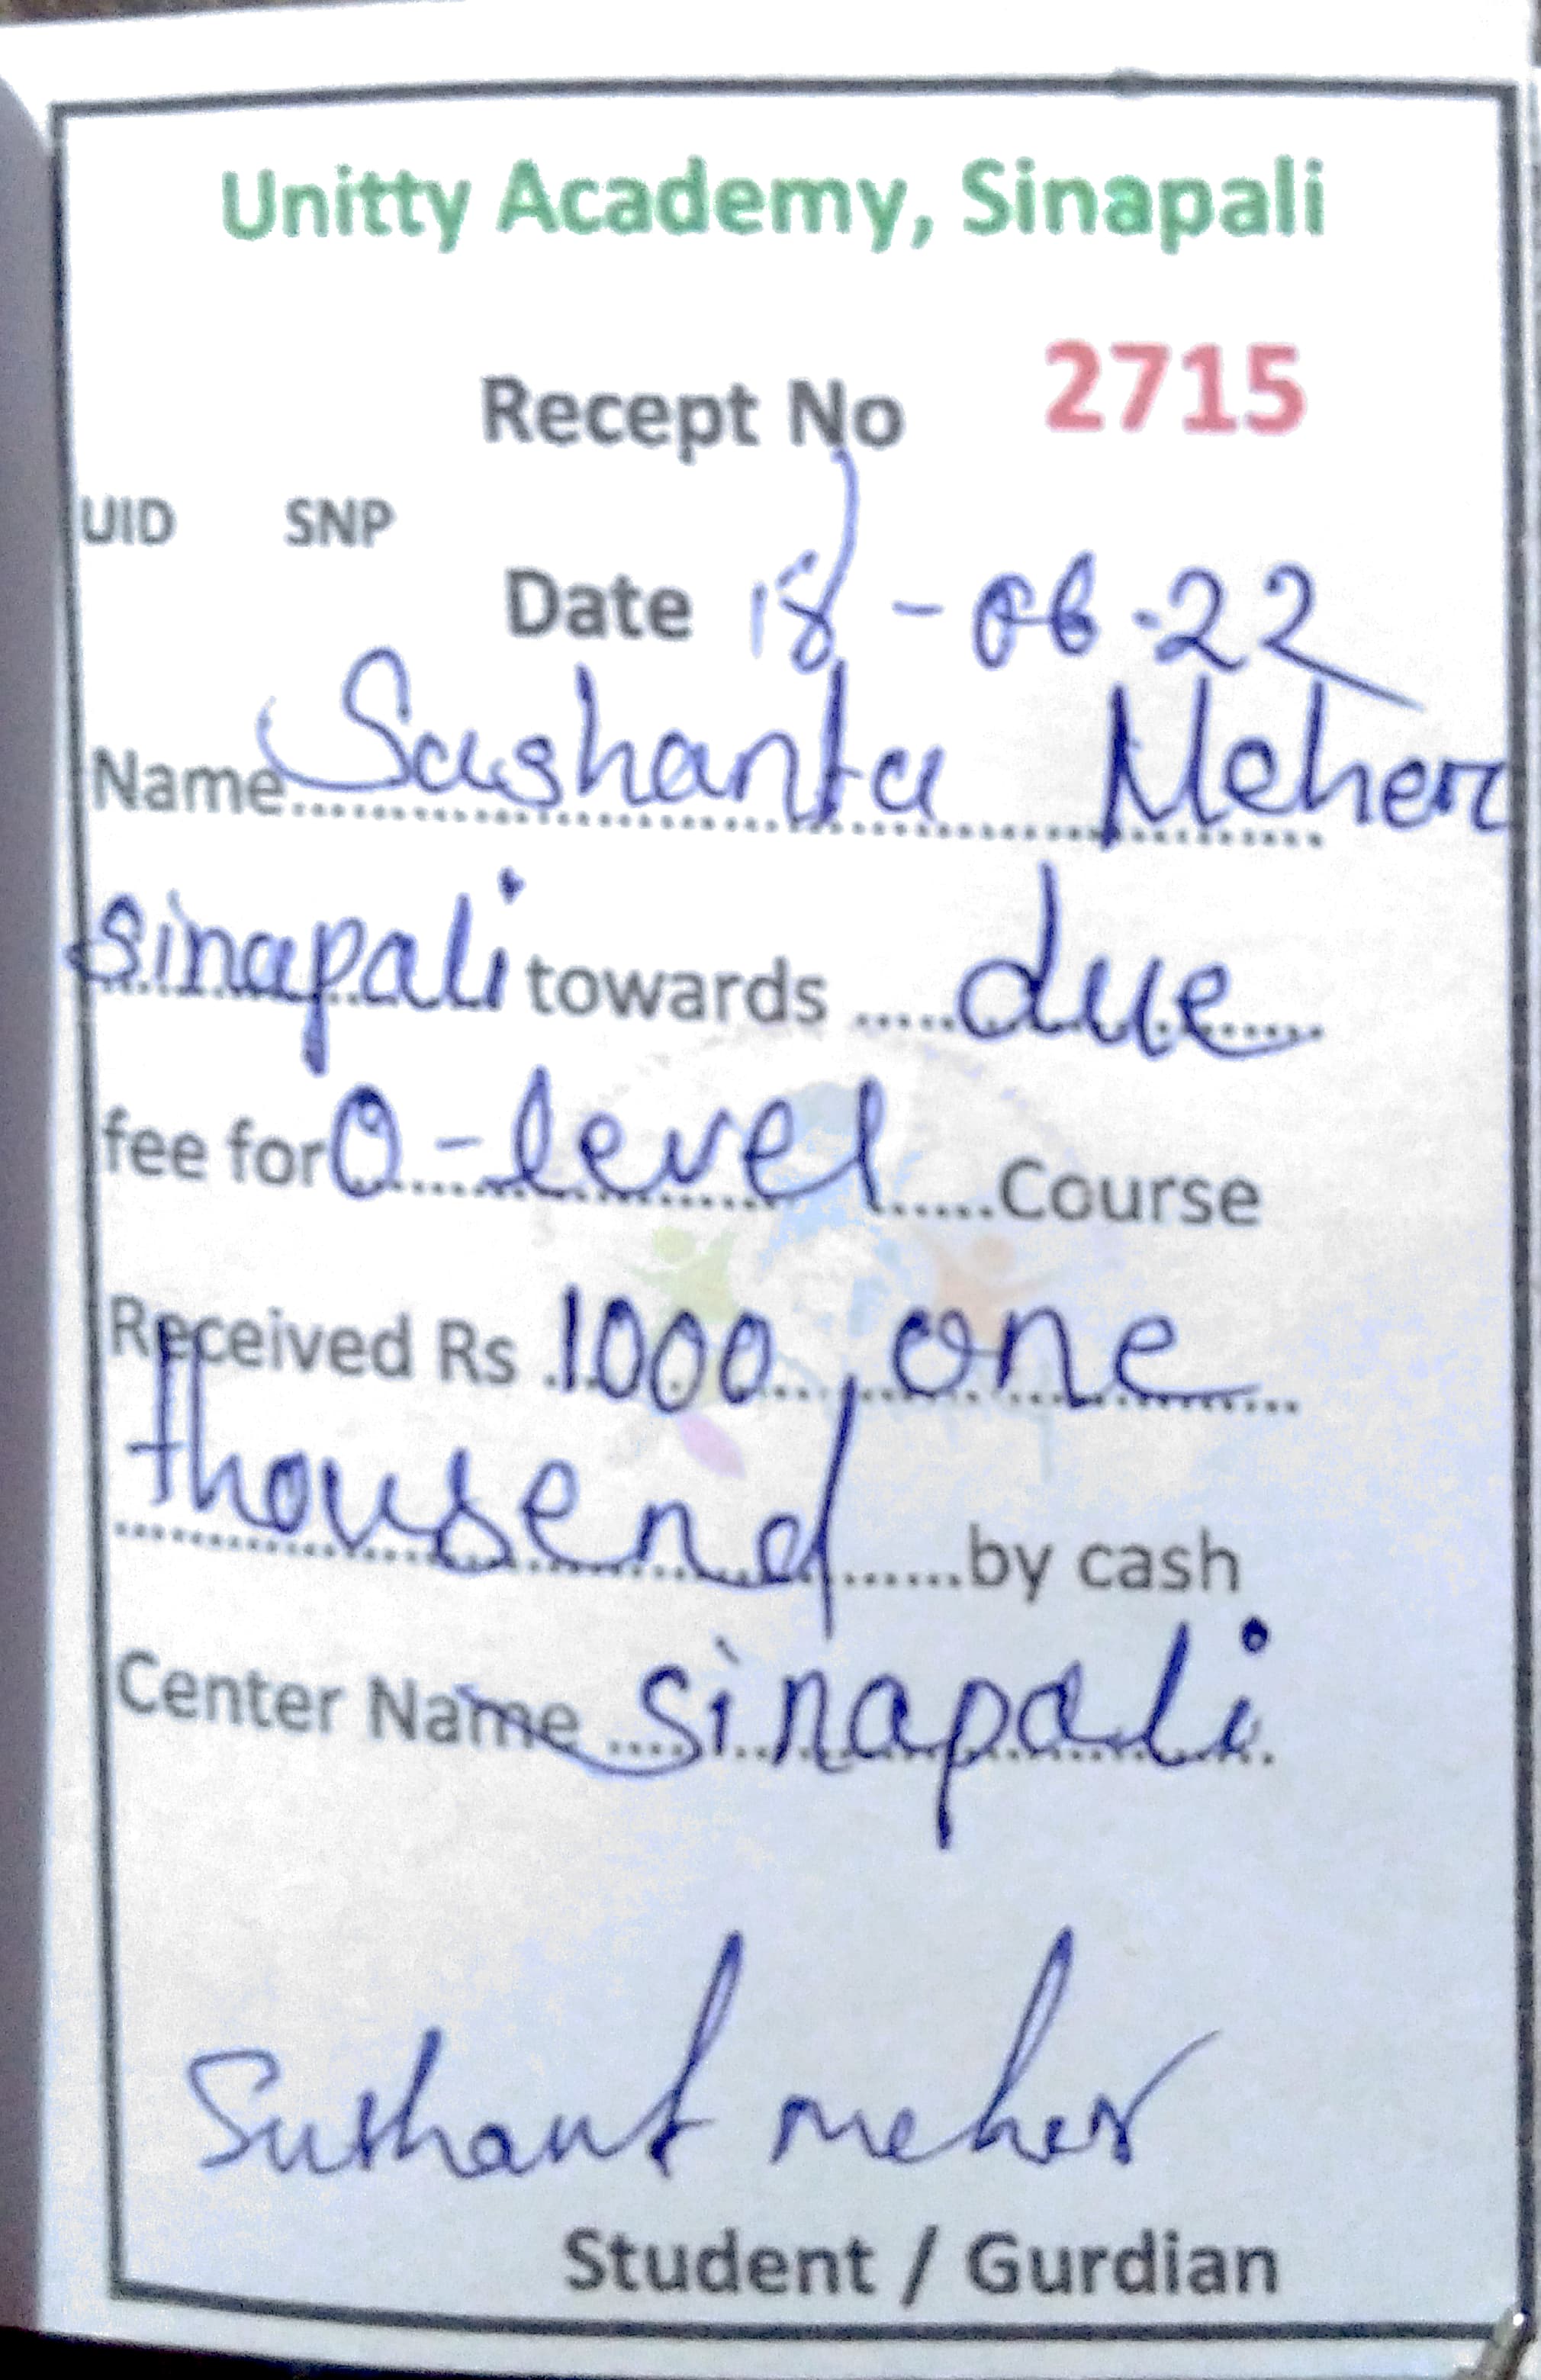 Unitty Academy, Sinapali
Recept No 2715
UID SNP
Date 18-06-22
Name Sushanta Meher
sinapali towards ..... due
fee for O-level ...... Course
Received Rs 1000, one
thousend ...... by cash
Center Name .... sinapali
Sushant meher
Student / Gurdian